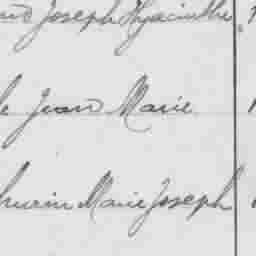 Joseph Hyacinthe
Jean Marie
Marie Joseph